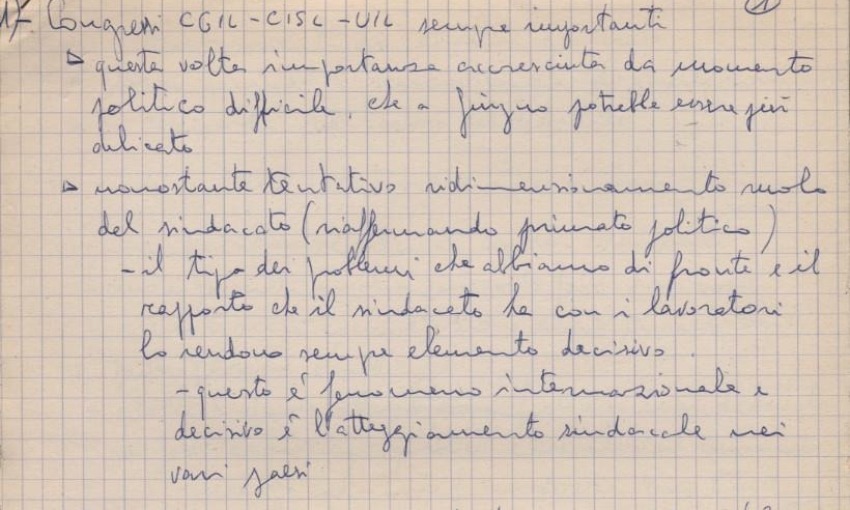 1)- Congressi CGIL-CISL-UIL sempre importanti ①
▹ questa volta importanza accresciuta da momento
politico difficile, che a giugno potrebbe essere più
delicato
▹ nonostante tentativo ridimensionamento ruolo
del sindacato (riaffermando primato politico)
- il tipo dei problemi che abbiamo di fronte e il
rapporto che il sindacato ha con i lavoratori
lo rendono sempre elemento decisivo.
- questo è fenomeno internazionale e
decisivo è l'atteggiamento sindacale nei
vari paesi